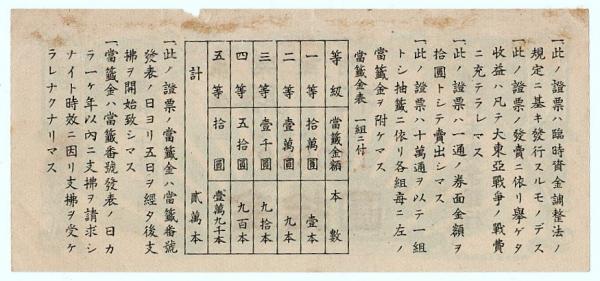 一、此ノ證票ハ臨時資金調整法ノ
規定ニ基キ發行スルモノデス
一、此ノ證票ノ發賣ニ依リ擧ゲタ
收益ハ凡テ大東亞戰爭ノ戰費
ニ充テラレマス
一、此ノ證票ハ一通ノ券面金額ヲ
拾圓トシテ賣出シマス
一、此ノ證票ハ十萬通ヲ以テ一組
トシ抽籤ニ依リ各組每ニ左ノ
當籤金ヲ附ケマス
當籤金表 一組ニ付
等級 當籤金額 本數
一等 拾萬圓 壹本
二等 壹萬圓 九本
三等 壹千圓 九拾本
四等 五拾圓 九百本
五等 拾圓 壹萬九千本
計 貳萬本
一、此ノ證票ノ當籤金ハ當籤番號
發表ノ日ヨリ五日ヲ經タ後支
拂ヲ開始致シマス
一、當籤金ハ當籤番號發表ノ日カ
ラ一ケ年以內ニ支拂ヲ請求シ
ナイト時效ニ因リ支拂ヲ受ケ
ラレナクナリマス